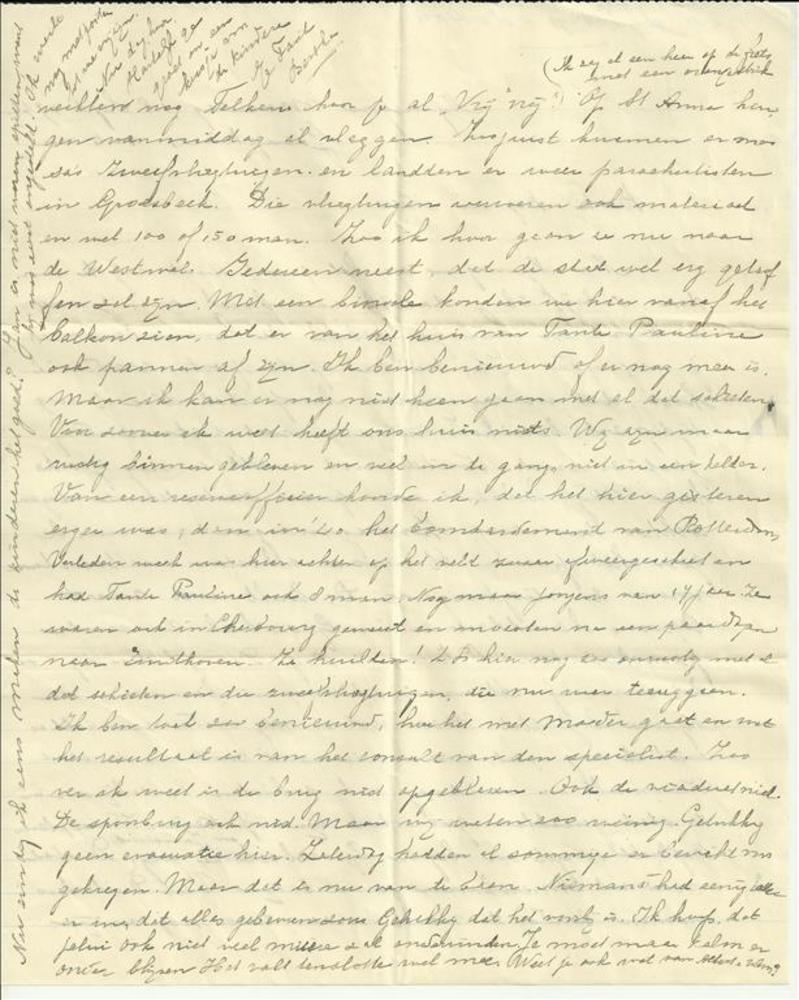 (Ik zag al een heer op de fiets
met een oranjestrik
vechtend nog. Telkens hoor je al "Vrij" "vrij"!) Op St Anna han-
gen vanmiddag al vlaggen. Zoojuist kwamen er mas-
sa's zweefvliegtuigen en landden er weer parachutisten
in Groesbeek. Die vliegtuigen vervoeren ook materiaal
en wel 100 of 150 man. Zoo ik hoor gaan ze nu naar
de Westwal. Iedereen meent, dat de stad wel erg getrof
fen zal zijn. Met een binocle konden we hier vanaf het
balkon zien, dat er van het huis van Tante Pauline
ook pannen af zijn. Ik ben benieuwd of er nog meer is.
Maar ik kan er nog niet heen gaan met al dat schieten.
Voor zoover ik weet heeft ons huis niets. Wij zijn maar
rustig binnen gebleven en veel in de gang, niet in een kelder.
Van een reserveofficier hoorde ik, dat het hier gisteren
erger was, dan in '40 het bombardement van Rotterdam.
Verleden week was hier achter op het veld zwaar afweergeschut en
had Tante Pauline ook 8 man. Nog maar jongens van 17 jaar. Ze
waren ook in Cherbourg geweest en moesten na een paar dagen
naar Eindhoven. Ze huilden! 't Is hier nog zoo onrustig met al
dat schieten en die zweefvliegtuigen, die nu weer teruggaan.
Ik ben toch zoo benieuwd, hoe het met Moeder gaat en wat
het resultaat is van het consult van den specialist. Zoo
ver ik weet is de brug niet opgeblazen. Ook de viaducten niet.
De spoorbrug ook niet. Maar wij weten zoo weinig. Gelukkig
geen evacuatie hier. Zaterdag hadden al sommige er bericht van
gekregen. Maar dat is nu van de baan. Niemand had eenig idee
er in, dat alles gebeuren zou. Gelukkig dat het voorbij is. Ik hoop, dat
jullie ook niet veel misère zult ondervinden. Je moet maar kalm er
onder blijven. Het valt tenslotte wel mee. Weet je ook wat van
Nu eindig ik eens maken de kinderen het goed? Jan is niet naar
Ik werk
nog met
Nu dag hoor
Hartelijk ge
groet en een
kusje aan
de kinderen
Je Tante
Bertha